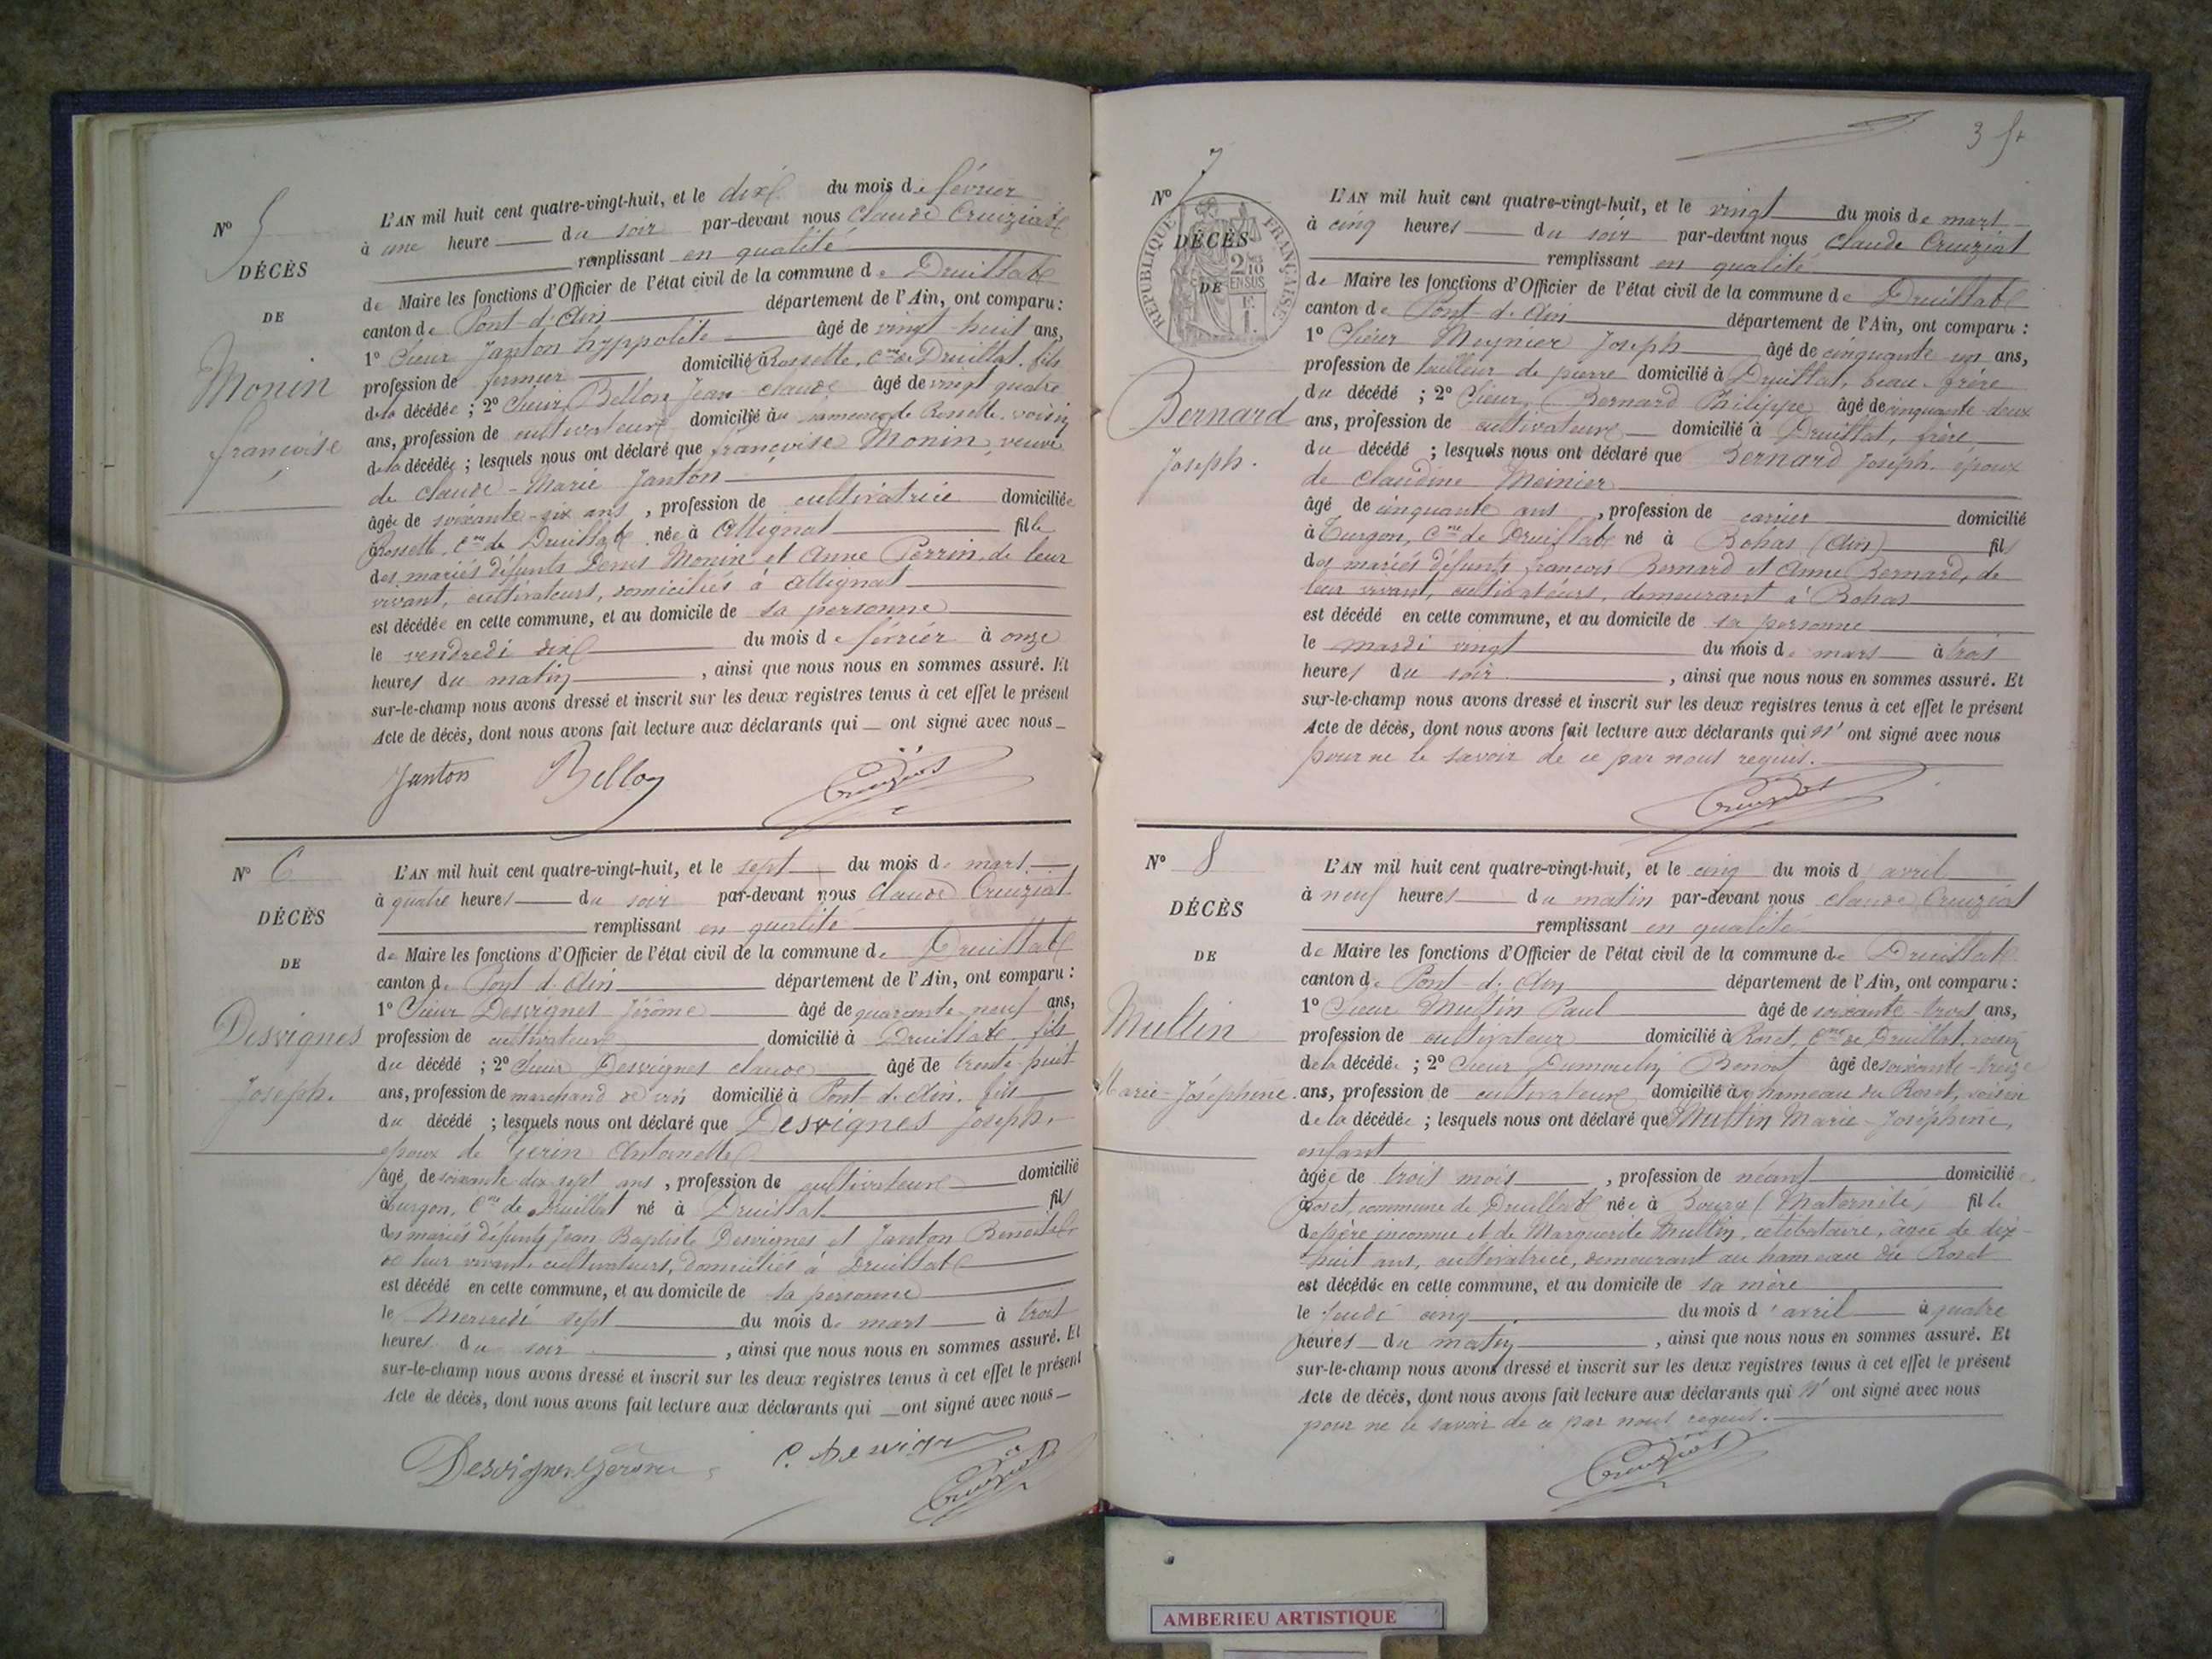 N° 5
DÉCÈS
DE
Monin
françoise
L'AN mil huit cent quatre-vingt-huit, et le dix du mois de février
à une heure du soir par-devant nous Claude Cruiziat
remplissant en qualité
de Maire les fonctions d'Officier de l'état civil de la commune de Druillat
canton de Pont-d'Ain département de l'Ain, ont comparu :
1° Sieur Janton hyppolite âgé de vingt-huit ans,
profession de fermier domicilié à Rossette, cne de Druillat, fils
de la décédée ; 2° Sieur Bellon Jean-Claude âgé de vingt quatre
ans, profession de cultivateur domicilié au hameau de Rossette, voisin
de la décédée ; lesquels nous ont déclaré que françoise Monin, veuve
de Claude-Marie Janton
âgée de soixante-six ans, profession de cultivatrice domiciliée
à Rossette, cne de Druillat née à Attignat fille
des mariés défunts Denis Monin et Anne Perrin, de leur
vivant, cultivateurs, domiciliés à Attignat
est décédée en cette commune, et au domicile de sa personne
le vendredi dix du mois de février à onze
heures du matin, ainsi que nous nous en sommes assuré. Et
sur-le-champ nous avons dressé et inscrit sur les deux registres tenus à cet effet le présent
Acte de décès, dont nous avons fait lecture aux déclarants qui ont signé avec nous
Janton Bellon Cruiziat
N° 6
DÉCÈS
DE
Desvignes
Joseph.
L'AN mil huit cent quatre-vingt-huit, et le sept du mois de mars
à quatre heures du soir par-devant nous Claude Cruiziat
remplissant en qualité
de Maire les fonctions d'Officier de l'état civil de la commune de Druillat
canton de Pont-d'Ain département de l'Ain, ont comparu :
1° Sieur Desvignes Jérôme âgé de quarante neuf ans,
profession de cultivateur domicilié à Druillat, fils
du décédé ; 2° Sieur Desvignes claude âgé de trente-huit
ans, profession de marchand de vin domicilié à Pont-d'Ain, fils
du décédé ; lesquels nous ont déclaré que Desvignes Joseph,
époux de Gerin Antoinette
âgé de soixante dix sept ans, profession de cultivateur domicilié
à Turgon, Cne de Druillat né à Druillat fils
des mariés défunts Jean Baptiste Desvignes et Janton Benoite
de leur vivant, cultivateurs, domiciliés à Druillat
est décédé en cette commune, et au domicile de sa personne
le Mercredi sept du mois de mars à trois
heures du soir, ainsi que nous nous en sommes assuré. Et
sur-le-champ nous avons dressé et inscrit sur les deux registres tenus à cet effet le présent
Acte de décès, dont nous avons fait lecture aux déclarants qui ont signé avec nous
Desvignes Jérome C. Desvignes Cruiziat
3
N° 7
DÉCÈS
DE
RÉPUBLIQUE FRANÇAISE
Bernard
Joseph.
L'AN mil huit cent quatre-vingt-huit, et le vingt du mois de mars
à cinq heures du soir par-devant nous Claude Cruiziat
remplissant en qualité
de Maire les fonctions d'Officier de l'état civil de la commune de Druillat
canton de Pont-d'Ain département de l'Ain, ont comparu :
1° Sieur Meynier Joseph âgé de cinquante un ans,
profession de tailleur de pierre domicilié à Druillat, beau-frère
du décédé ; 2° Sieur Bernard Philippe âgé de cinquante-deux
ans, profession de cultivateur domicilié à Druillat, frère
du décédé ; lesquels nous ont déclaré que Bernard Joseph, époux
de Claudine Meinier
âgé de cinquante ans, profession de carrier domicilié
à Turgon, Cne de Druillat né à Bohas (Ain) fils
des mariés défunts françois Bernard et Anne Bernard, de
leur vivant, cultivateurs, demeurant à Bohas
est décédé en cette commune, et au domicile de sa personne
le mardi vingt du mois de mars à trois
heures du soir, ainsi que nous nous en sommes assuré. Et
sur-le-champ nous avons dressé et inscrit sur les deux registres tenus à cet effet le présent
Acte de décès, dont nous avons fait lecture aux déclarants qui n'ont signé avec nous
pour ne le savoir de ce par nous requis.
Cruiziat
N° 8
DÉCÈS
DE
Multin
Marie-Joséphine.
L'AN mil huit cent quatre-vingt-huit, et le cinq du mois d'avril
à neuf heures du matin par-devant nous claude Cruiziat
remplissant en qualité
de Maire les fonctions d'Officier de l'état civil de la commune de Druillat
canton de Pont-d'Ain département de l'Ain, ont comparu :
1° Sieur Multin Paul âgé de soixante-trois ans,
profession de cultivateur domicilié à Roset, Cne de Druillat, voisin
de la décédée ; 2° Sieur Dumoulin Benoit âgé de soixante-treize
ans, profession de cultivateur domicilié au hameau du Roset, voisin
de la décédée ; lesquels nous ont déclaré que Multin Marie-Joséphine,
enfant
âgée de trois mois, profession de néant domiciliée
à Roset, commune de Druillat née à Bourg (Maternité) fille
de père inconnu et de Marguerite Multin, célibataire, âgée de dix-
huit ans, cultivatrice, demeurant au hameau du Roset
est décédée en cette commune, et au domicile de sa mère
le Jeudi cinq du mois d'avril à quatre
heures du matin, ainsi que nous nous en sommes assuré. Et
sur-le-champ nous avons dressé et inscrit sur les deux registres tenus à cet effet le présent
Acte de décès, dont nous avons fait lecture aux déclarants qui n'ont signé avec nous
pour ne le savoir de ce par nous requis.
Cruiziat
AMBERIEU ARTISTIQUE